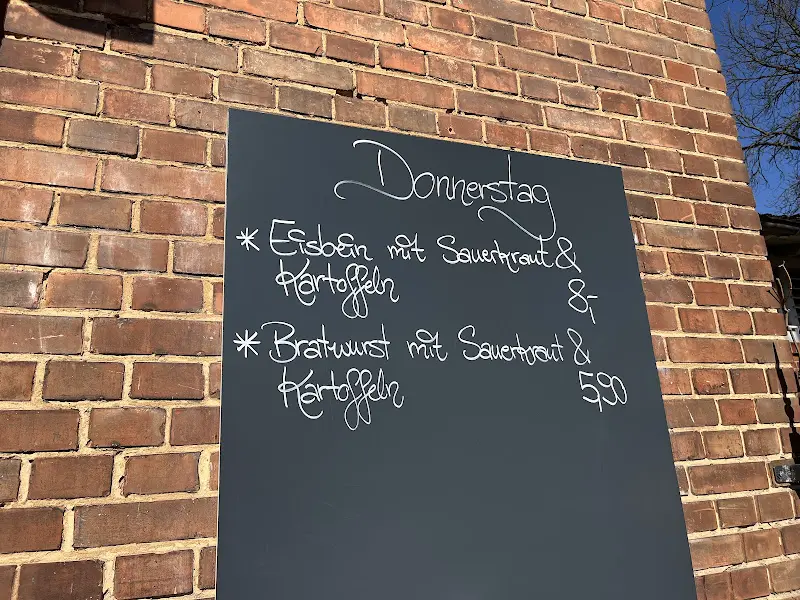 Donnerstag
* Eisbein mit Sauerkraut &
Kartoffeln 8,-
* Bratwurst mit Sauerkraut &
Kartoffeln 5,90